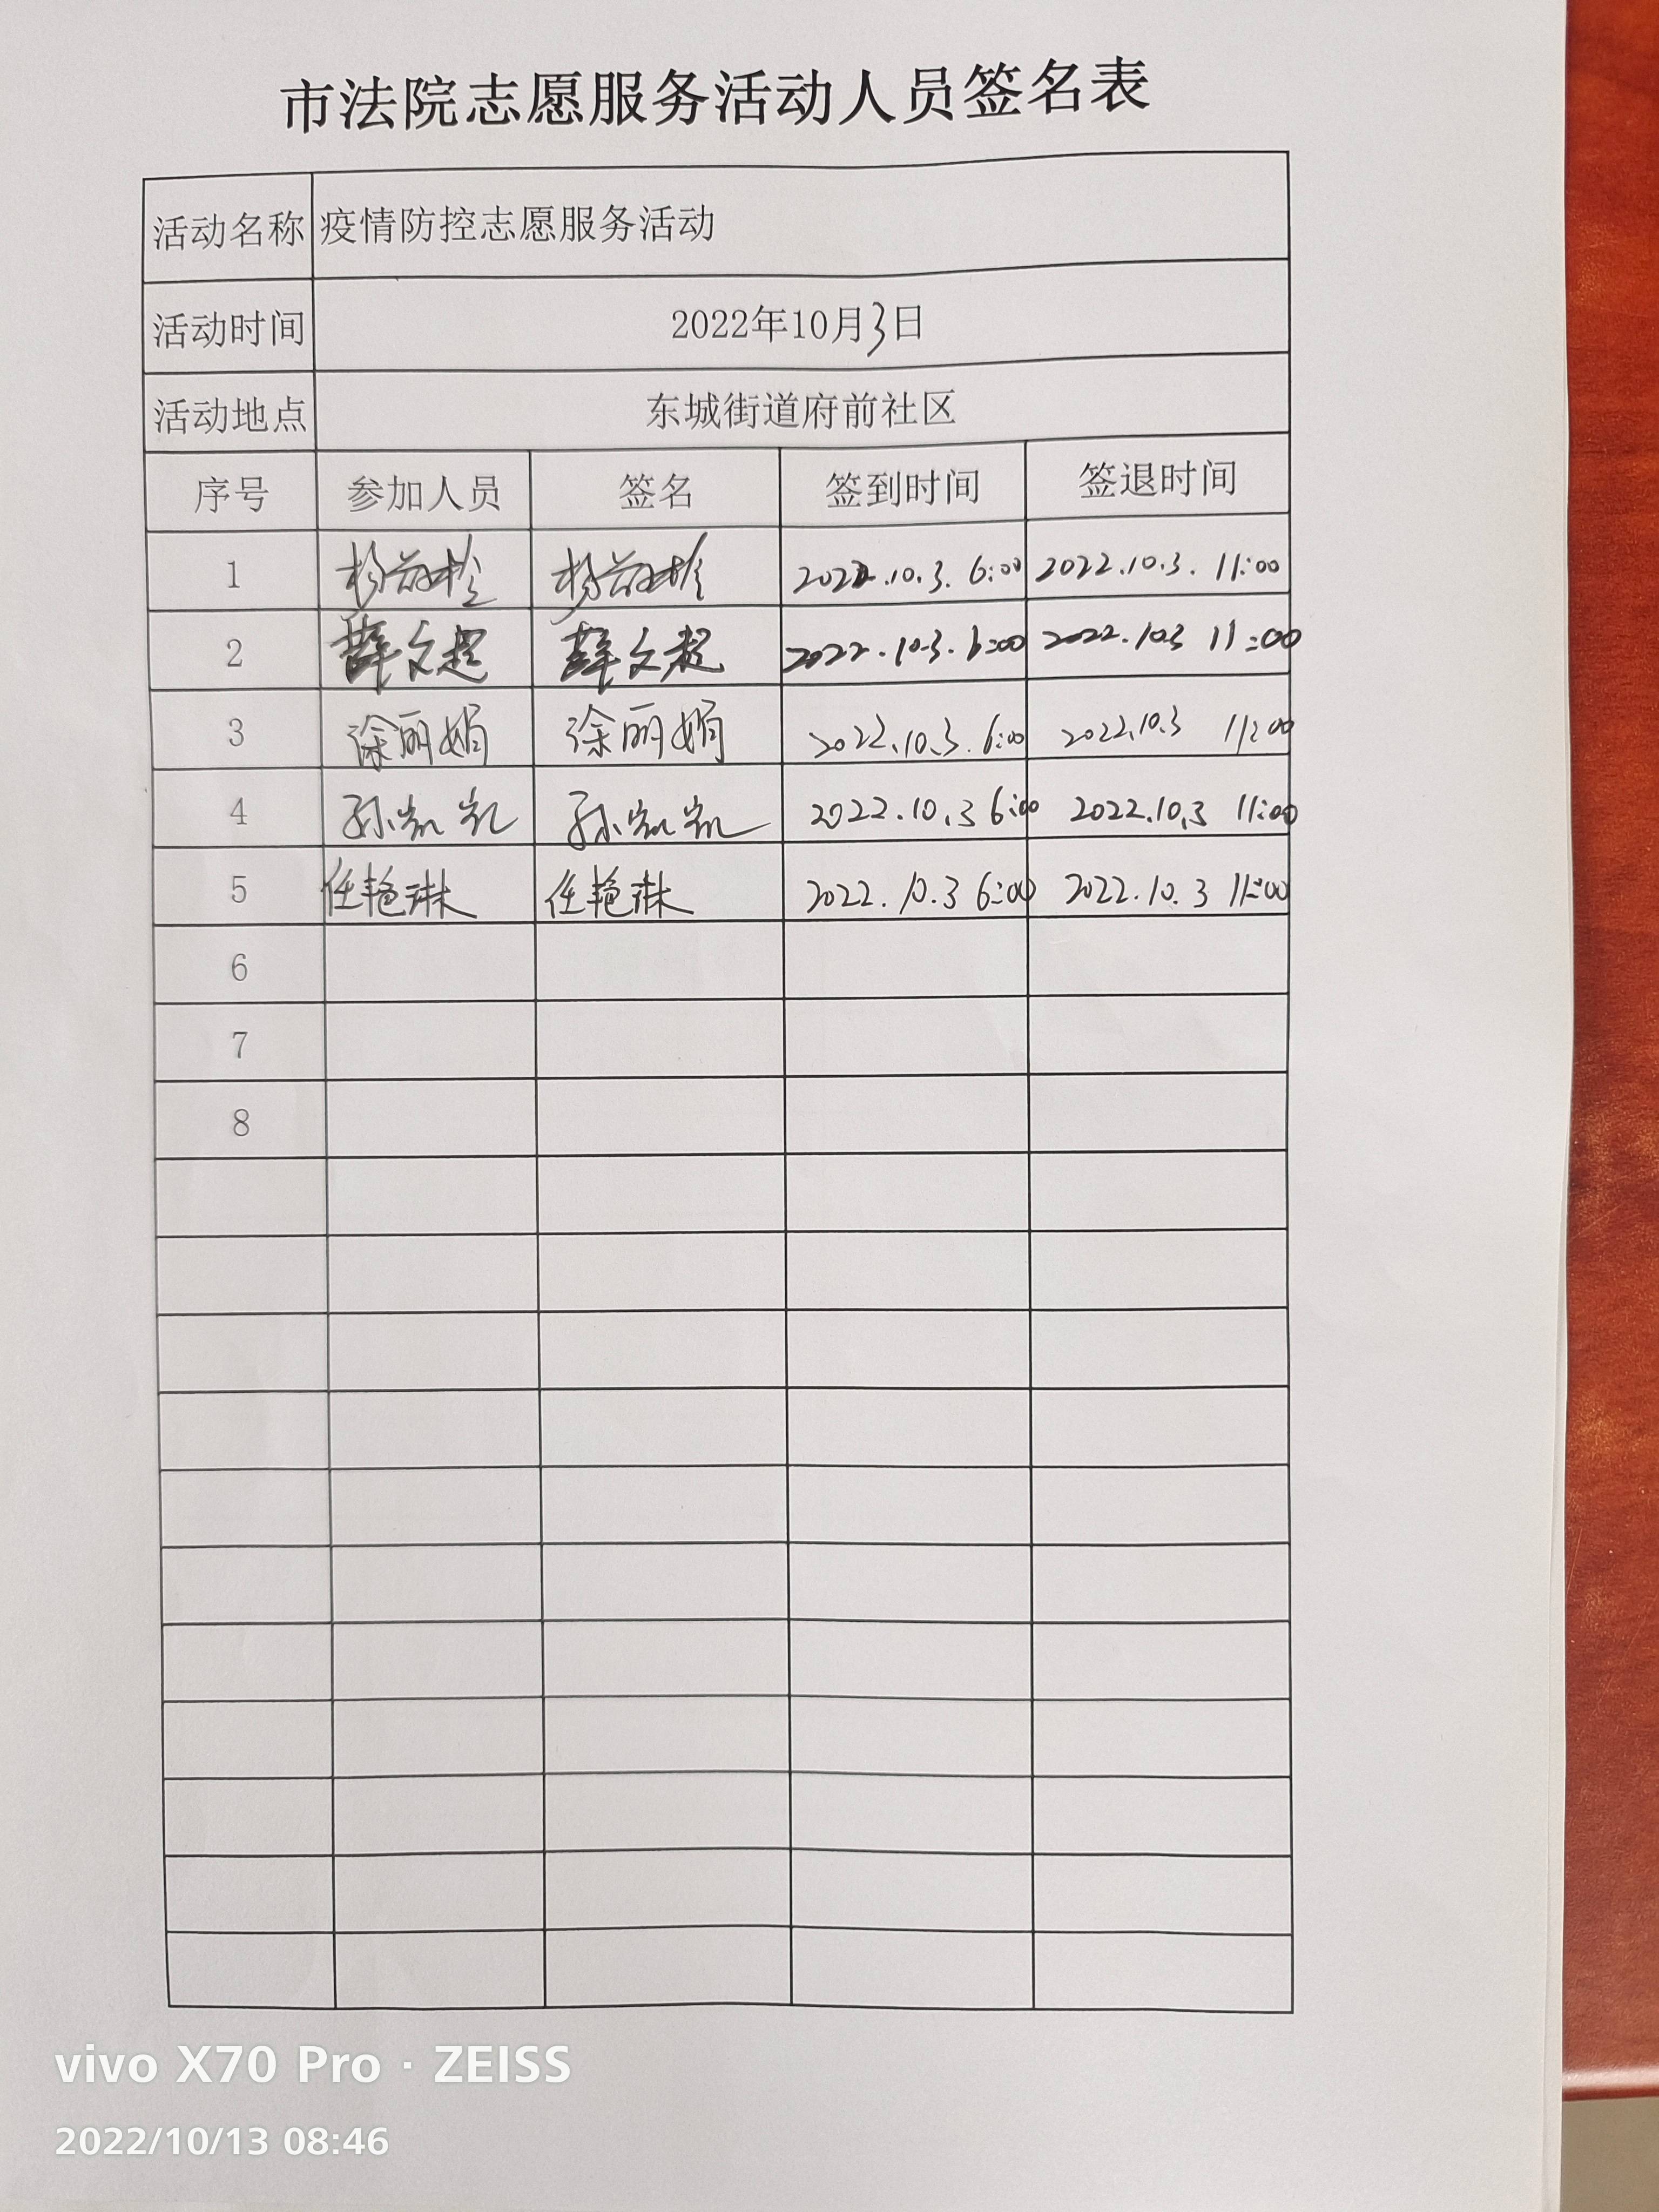 市法院志愿服务活动人员签名表
活动名称 疫情防控志愿服务活动
活动时间 2022年10月3日
活动地点 东城街道府前社区
序号 参加人员 签名 签到时间 签退时间
1 杨 杨 2022.10.3. 6:00 2022.10.3. 11:00
2 薛文超 薛文超 2022.10.3. 6:00 2022.10.3 11:00
3 徐丽娟 徐丽娟 2022.10.3. 6:00 2022.10.3 11:00
4 孙凯凯 孙凯凯 2022.10.3 6:00 2022.10.3 11:00
5 任艳琳 任艳琳 2022.10.3 6:00 2022.10.3 11:00
6
7
8
vivo X70 Pro · ZEISS
2022/10/13 08:46